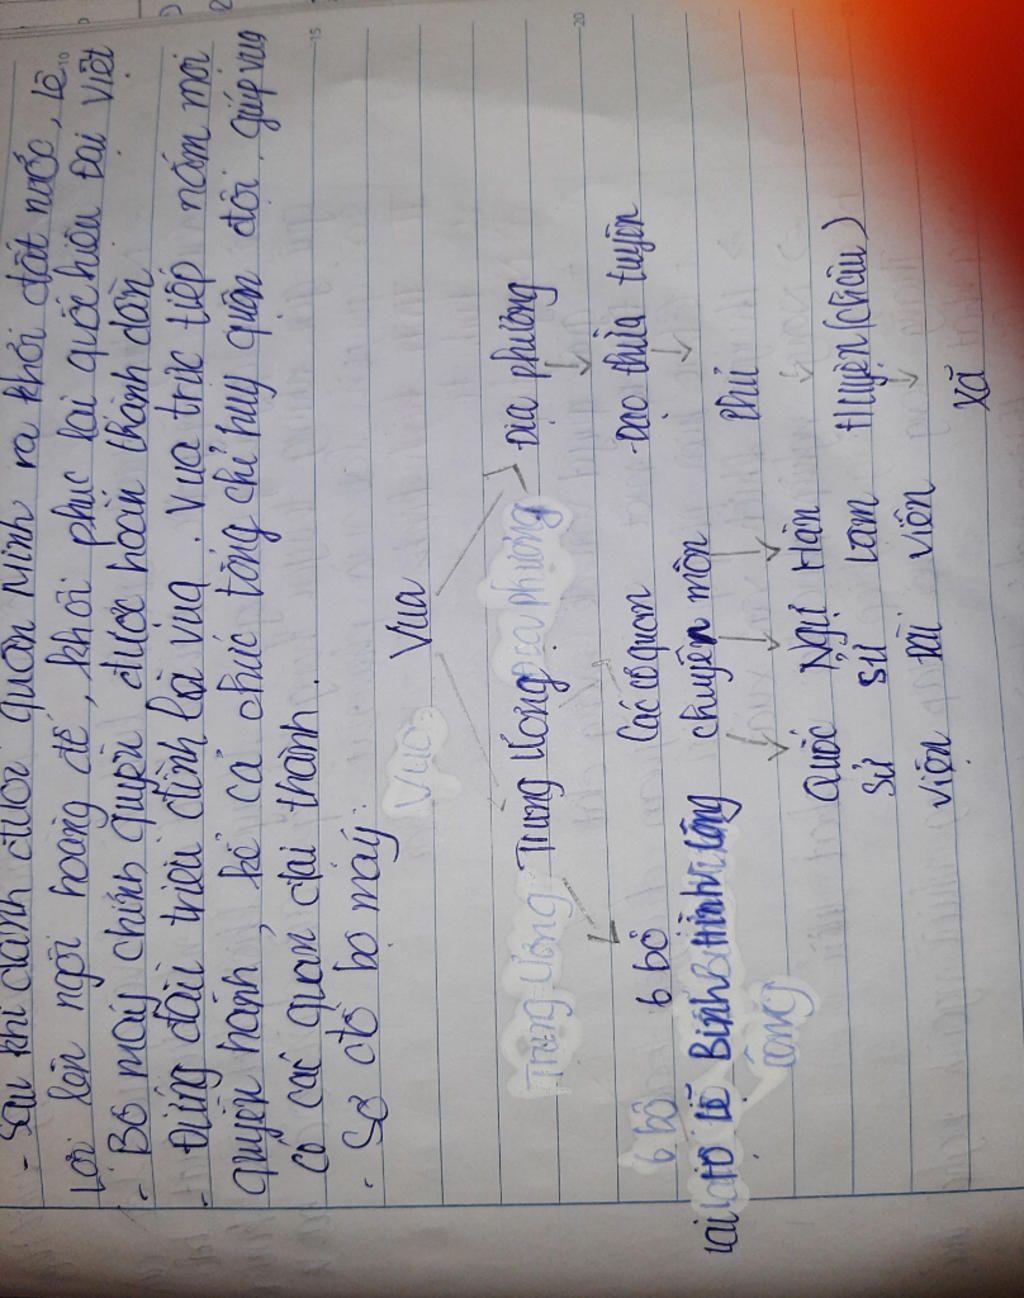 - Sau khi đánh đuổi quân Minh ra khỏi đất nước, Lê
Lợi lên ngôi hoàng đế, khôi phục lại quốc hiệu Đại Việt
- Bộ máy chính quyền được hoàn thành dần
- Đứng đầu triều đình là vua. Vua trực tiếp nắm mọi
quyền hành, kể cả chức tổng chỉ huy quân đội. giúp vua
có các quan đại thành.
- Sơ đồ bộ máy:
Vua
Vua
Trung Ương Trung Ương Địa phương Địa phương
6 bộ 6 bộ Các cơ quan Đạo thừa tuyên
Lại Hộ Lễ Binh Hình Công chuyên môn Phủ
Công
Quốc Ngự Hàn
Sử Sử Lâm Huyện (Châu)
viện Đài viện
Xã